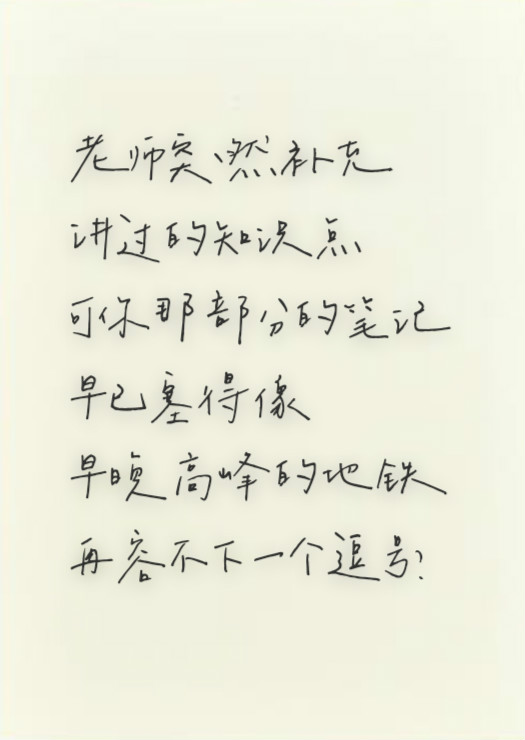 老师突然补充
讲过的知识点
可你那部分的笔记
早已塞得像
早晚高峰的地铁
再容不下一个逗号？